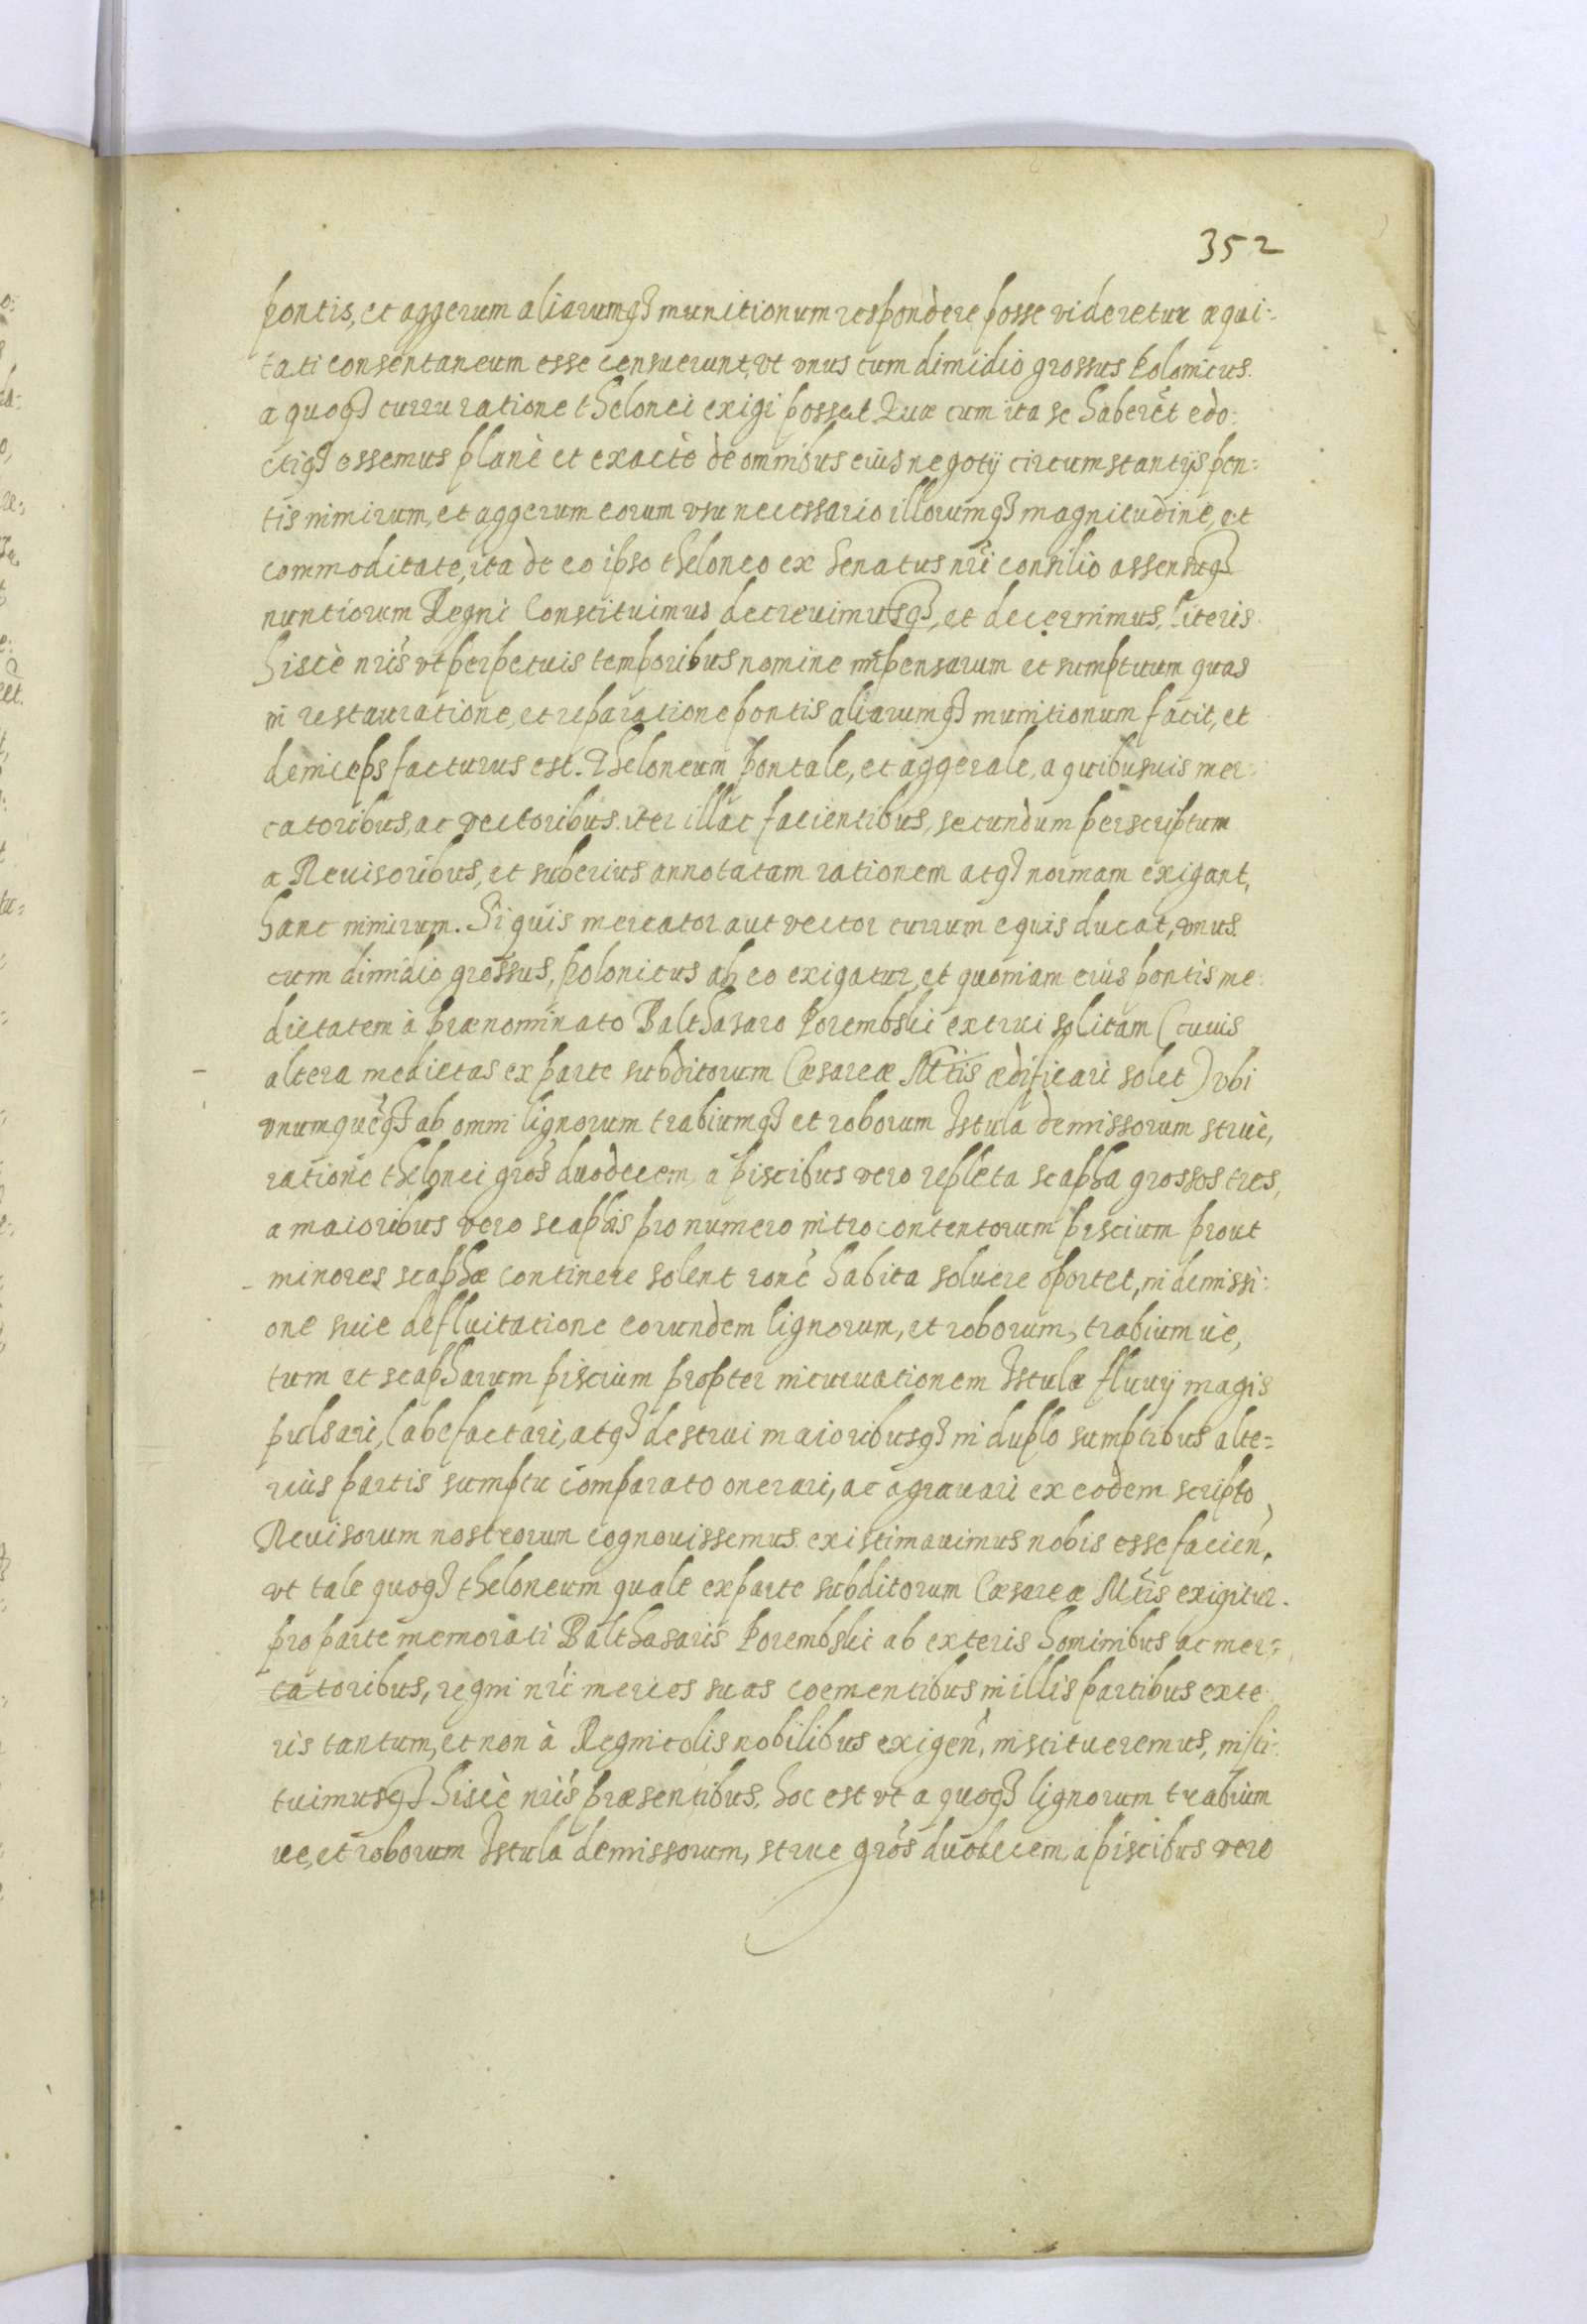 352
pontis, et aggerum aliarumq3 munitionum respondere posse videretur æqui:
tati consentaneum esse censuerunt, vt vnus cum dimidio grossus Polonicus
a quoq3 curru ratione thelonei exigi posset Quæ cum ita se haberēt edo:
ctiq3 essemus planè et exactè de omnibus eius negotij circumstantijs pon:
tis nimirum, et aggerum eorum vsu necessario illorumq3 magnitudine, et
commoditate, ita de eo ipso theloneo ex Senatus nri consilio assensuq3
nuntiorum Regni Constituimus decreuimusq3, et decernimus, literis
hisce nris vt perpetuis temporibus nomine impensarum et sumptuum quas
in restauratione, et reparatione pontis aliarumq3 munitionum facit, et
deinceps facturus est. Theloneum pontale, et aggerale, a quibusuis mer:
catoribus, ac vectoribus iter illac facientibus, secundum perscriptum
a Reuisoribus, et suberius annotatam rationem atq3 normam exigant,
hanc nimirum. Si quis mercator aut vector currum equis ducat, vnus
cum dimidio grossus, polonicus ab eo exigatur, et quoniam eius pontis me:
dietatem à prænominato Balthasaro Porembski extrui solitam (cuius
altera medietas ex parte subditorum Cæsareæ Mtis ædificari solet) vbi
vnumquēq3 ab omni lignorum trabiumq3 et roborum Istula demissorum strue,
ratione thelonei gros duodecem, a piscibus vero repleta scapha grossos tres,
a maioribus vero scaphis pro numero intro contentorum piscium prout
minores scaphæ continere solent rone habita soluere oportet, in demissi:
one siue defluitatione eorundem lignorum, et roborum, trabium ue,
tum et scapharum piscium propter incuruationem Istulæ fluuij magis
pulsari, labefactari, atq3 destrui maioribusq3 in duplo sumptibus alte=
rius partis sumptu comparato onerari, ac agrauari ex eodem scripto
Reuisorum nostrorum cognouissemus existimauimus nobis esse facien,
vt tale quoq3 theloneum quale ex parte subditorum Cæsareæ Mtis exigitur.
pro parte memorati Balthasaris Porembski ab exteris hominibus ac mer=
catoribus, regni nri merces suas coementibus in illis partibus exte
ris tantum, et non à Regnicolis nobilibus exigen, institueremus, insti:
tuimusq3 hisce nris præsentibus, hoc est vt a quoq3 lignorum trabium
ue, et roborum Istula demissorum, strue gros duodecem, a piscibus vero